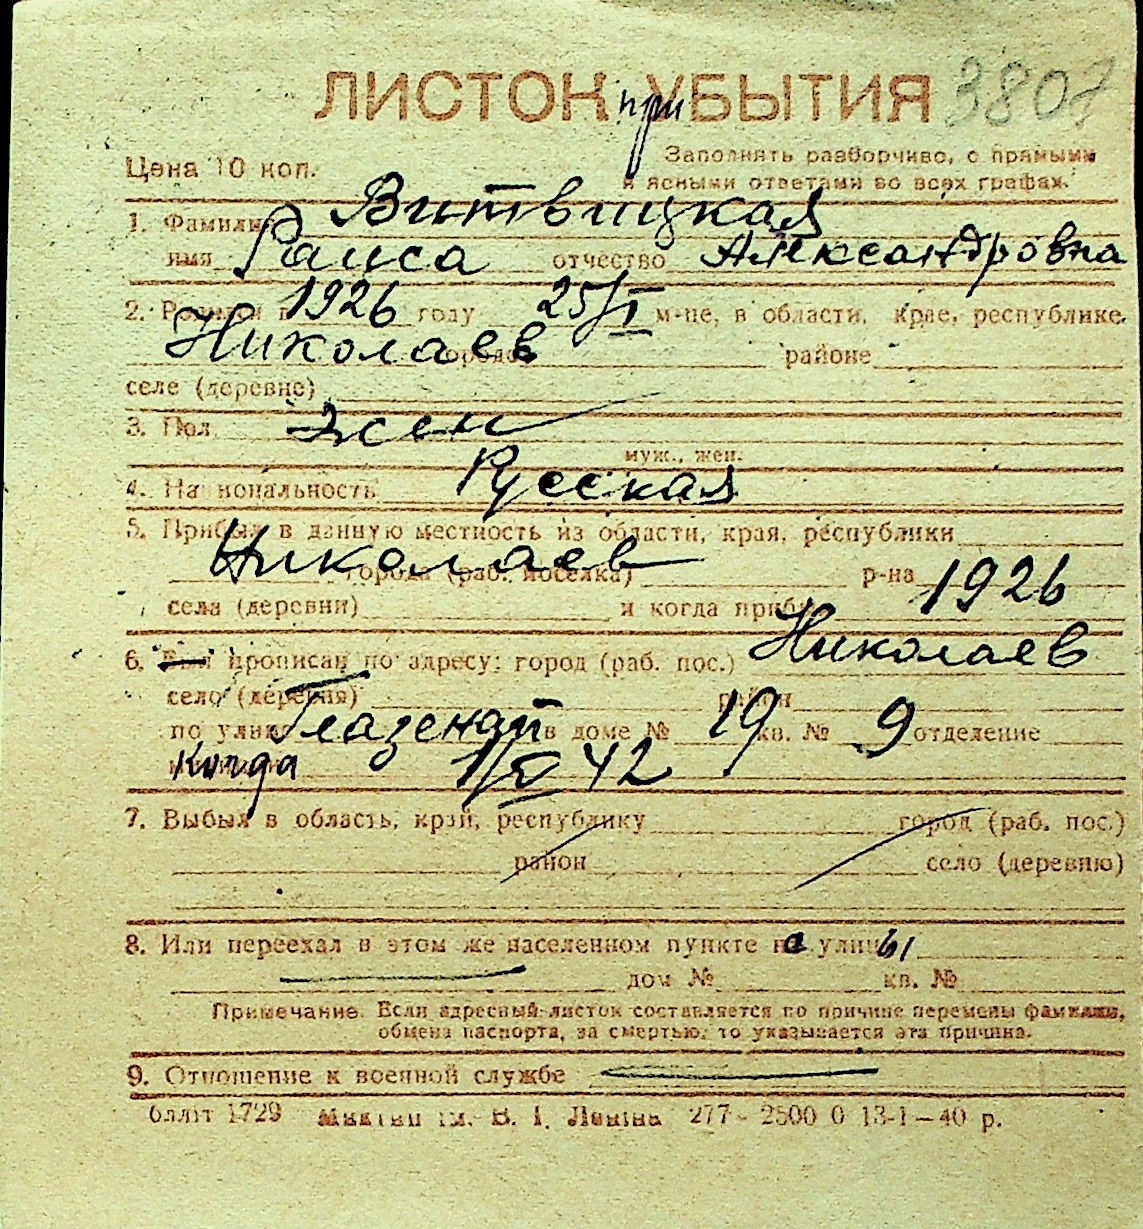 ЛИСТОК при УБЫТИЯ 3807
Цена 10 коп. Заполнять разборчиво, с прямыми
и ясными ответами во всех графах.
1. Фамилия Витвицкая
имя Раиса отчество Александровна
2. Родился в 1926 году 25/I м-це, в области, крае, республике
Николаев городе районе
селе (деревне)
3. Пол жен
муж., жен.
4. Национальность Русская
5. Прибыл в данную местность из области, края, республики
Николаев города (раб. поселка) р-на
села (деревни) и когда прибыл 1926
6. Был прописан по адресу: город (раб. пос.) Николаев
село (деревня) район
по улице Глазенап в доме № 19 кв. № 9 отделение
Когда 1/V 42
7. Выбыл в область, край, республику город (раб. пос.)
район село (деревню)
8. Или переехал в этом же населенном пункте на улицы
дом № кв. №
Примечание. Если адресный листок составляется по причине перемены фамилии,
обмена паспорта, за смертью, то указывается эта причина.
9. Отношение к военной службе
1729 В. І. Леніна 277-2500 0 13-1-40 р.